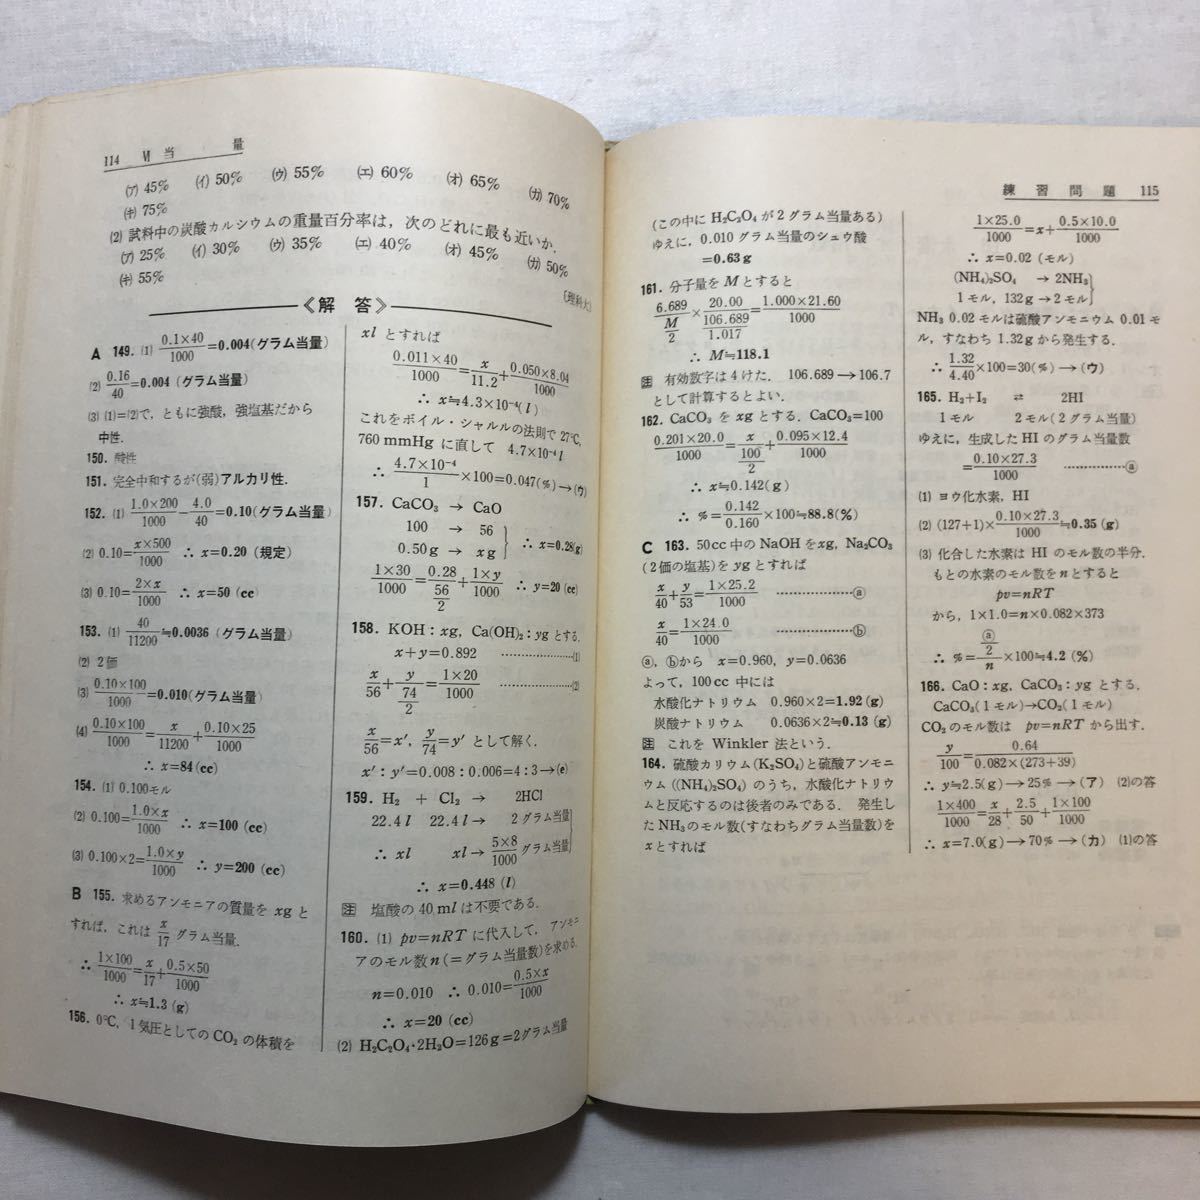 114 Ⅵ 当 量
(ア) 45% (イ) 50% (ウ) 55% (エ) 60% (オ) 65% (カ) 70%
(キ) 75%
(2) 試料中の炭酸カルシウムの重量百分率は，次のどれに最も近いか．
(ア) 25% (イ) 30% (ウ) 35% (エ) 40% (オ) 45% (カ) 50%
(キ) 55%
〔理科大〕
《解 答》
A 149. (1) 0.1×40/1000=0.004(グラム当量)
(2) 0.16/40=0.004 (グラム当量)
(3) (1)=(2)で，ともに強酸，強塩基だから
中性．
150. 酸性
151. 完全中和するが(弱)アルカリ性．
152. (1) 1.0×200/1000−4.0/40=0.10(グラム当量)
(2) 0.10=x×500/1000 ∴ x=0.20 (規定)
(3) 0.10=2×x/1000 ∴ x=50 (cc)
153. (1) 40/11200≒0.0036 (グラム当量)
(2) 2価
(3) 0.10×100/1000=0.010(グラム当量)
(4) 0.10×100/1000=x/11200+0.10×25/1000
∴ x=84(cc)
154. (1) 0.100モル
(2) 0.100=1.0×x/1000 ∴ x=100 (cc)
(3) 0.100×2=1.0×y/1000 ∴ y=200 (cc)
B 155. 求めるアンモニアの質量を xg と
すれば，これは x/17 グラム当量．
∴ 1×100/1000=x/17+0.5×50/1000
∴ x≒1.3 (g)
156. 0℃，1気圧としてのCO₂の体積を
xl とすれば
0.011×40/1000=x/11.2+0.050×8.04/1000
∴ x≒4.3×10⁻⁴(l)
これをボイル・シャルルの法則で27℃，
760 mmHg に直して 4.7×10⁻⁴l
∴ 4.7×10⁻⁴/1×100=0.047(%)→(ウ)
157. CaCO₃ → CaO
100 → 56
0.50g → xg } ∴ x=0.28(g)
1×30/1000=0.28/(56/2)+1×y/1000 ∴ y=20 (cc)
158. KOH：xg，Ca(OH)₂：yg とする．
x+y=0.892 ……………(1)
x/56+y/(74/2)=1×20/1000 ……………(2)
x/56=x′，y/74=y′ として解く．
x′：y′=0.008：0.006=4：3→(e)
159. H₂ + Cl₂ → 2HCl
22.4l 22.4l → 2グラム当量
∴ xl xl→5×8/1000グラム当量
∴ x=0.448 (l)
注 塩酸の 40 ml は不要である．
160. (1) pv=nRT に代入して，アンモニ
アのモル数n(=グラム当量数)を求める．
n=0.010 ∴ 0.010=0.5×x/1000
∴ x=20 (cc)
(2) H₂C₂O₄・2H₂O=126g=2グラム当量
練 習 問 題 115
(この中に H₂C₂O₄ が2グラム当量ある)
ゆえに，0.010 グラム当量のシュウ酸
=0.63g
161. 分子量を M とすると
6.689/(M/2)×20.00/(106.689/1.017)=1.000×21.60/1000
∴ M≒118.1
注 有効数字は4けた．106.689→106.7
として計算するとよい．
162. CaCO₃ を xg とする．CaCO₃=100
0.201×20.0/1000=x/(100/2)+0.095×12.4/1000
∴ x≒0.142(g)
∴ %=0.142/0.160×100≒88.8(%)
C 163. 50cc 中の NaOH をxg，Na₂CO₃
(2価の塩基)を yg とすれば
x/40+y/53=1×25.2/1000 ……………ⓐ
x/40=1×24.0/1000 ……………ⓑ
ⓐ，ⓑから x=0.960，y=0.0636
よって，100cc 中には
水酸化ナトリウム 0.960×2=1.92 (g)
炭酸ナトリウム 0.0636×2≒0.13 (g)
注 これを Winkler 法という．
164. 硫酸カリウム(K₂SO₄)と硫酸アンモニ
ウム((NH₄)₂SO₄)のうち，水酸化ナトリウ
ムと反応するのは後者のみである．発生し
たNH₃のモル数(すなわちグラム当量数)を
xとすれば
1×25.0/1000=x+0.5×10.0/1000
∴ x=0.02 (モル)
(NH₄)₂SO₄ → 2NH₃
1モル，132g→2モル}
NH₃ 0.02モルは硫酸アンモニウム 0.01モ
ル，すなわち 1.32gから発生する．
∴ 1.32/4.40×100=30(%)→(ウ)
165. H₂+I₂ ⇄ 2HI
1モル 2モル(2グラム当量)
ゆえに，生成したHIのグラム当量数
=0.10×27.3/1000 ……………ⓐ
(1) ヨウ化水素，HI
(2) (127+1)×0.10×27.3/1000≒0.35 (g)
(3) 化合した水素は HI のモル数の半分．
もとの水素のモル数をnとすると
pv=nRT
から，1×1.0=n×0.082×373
∴ %=(ⓐ/2)/n×100≒4.2 (%)
166. CaO：xg，CaCO₃：yg とする．
CaCO₃(1モル)→CO₂(1モル)
CO₂のモル数は pv=nRT から出す．
y/100=0.64/0.082×(273+39)
∴ y≒2.5(g)→25%→(ア) (2)の答
1×400/1000=x/28+2.5/50+1×100/1000
∴ x=7.0(g)→70%→(カ) (1)の答